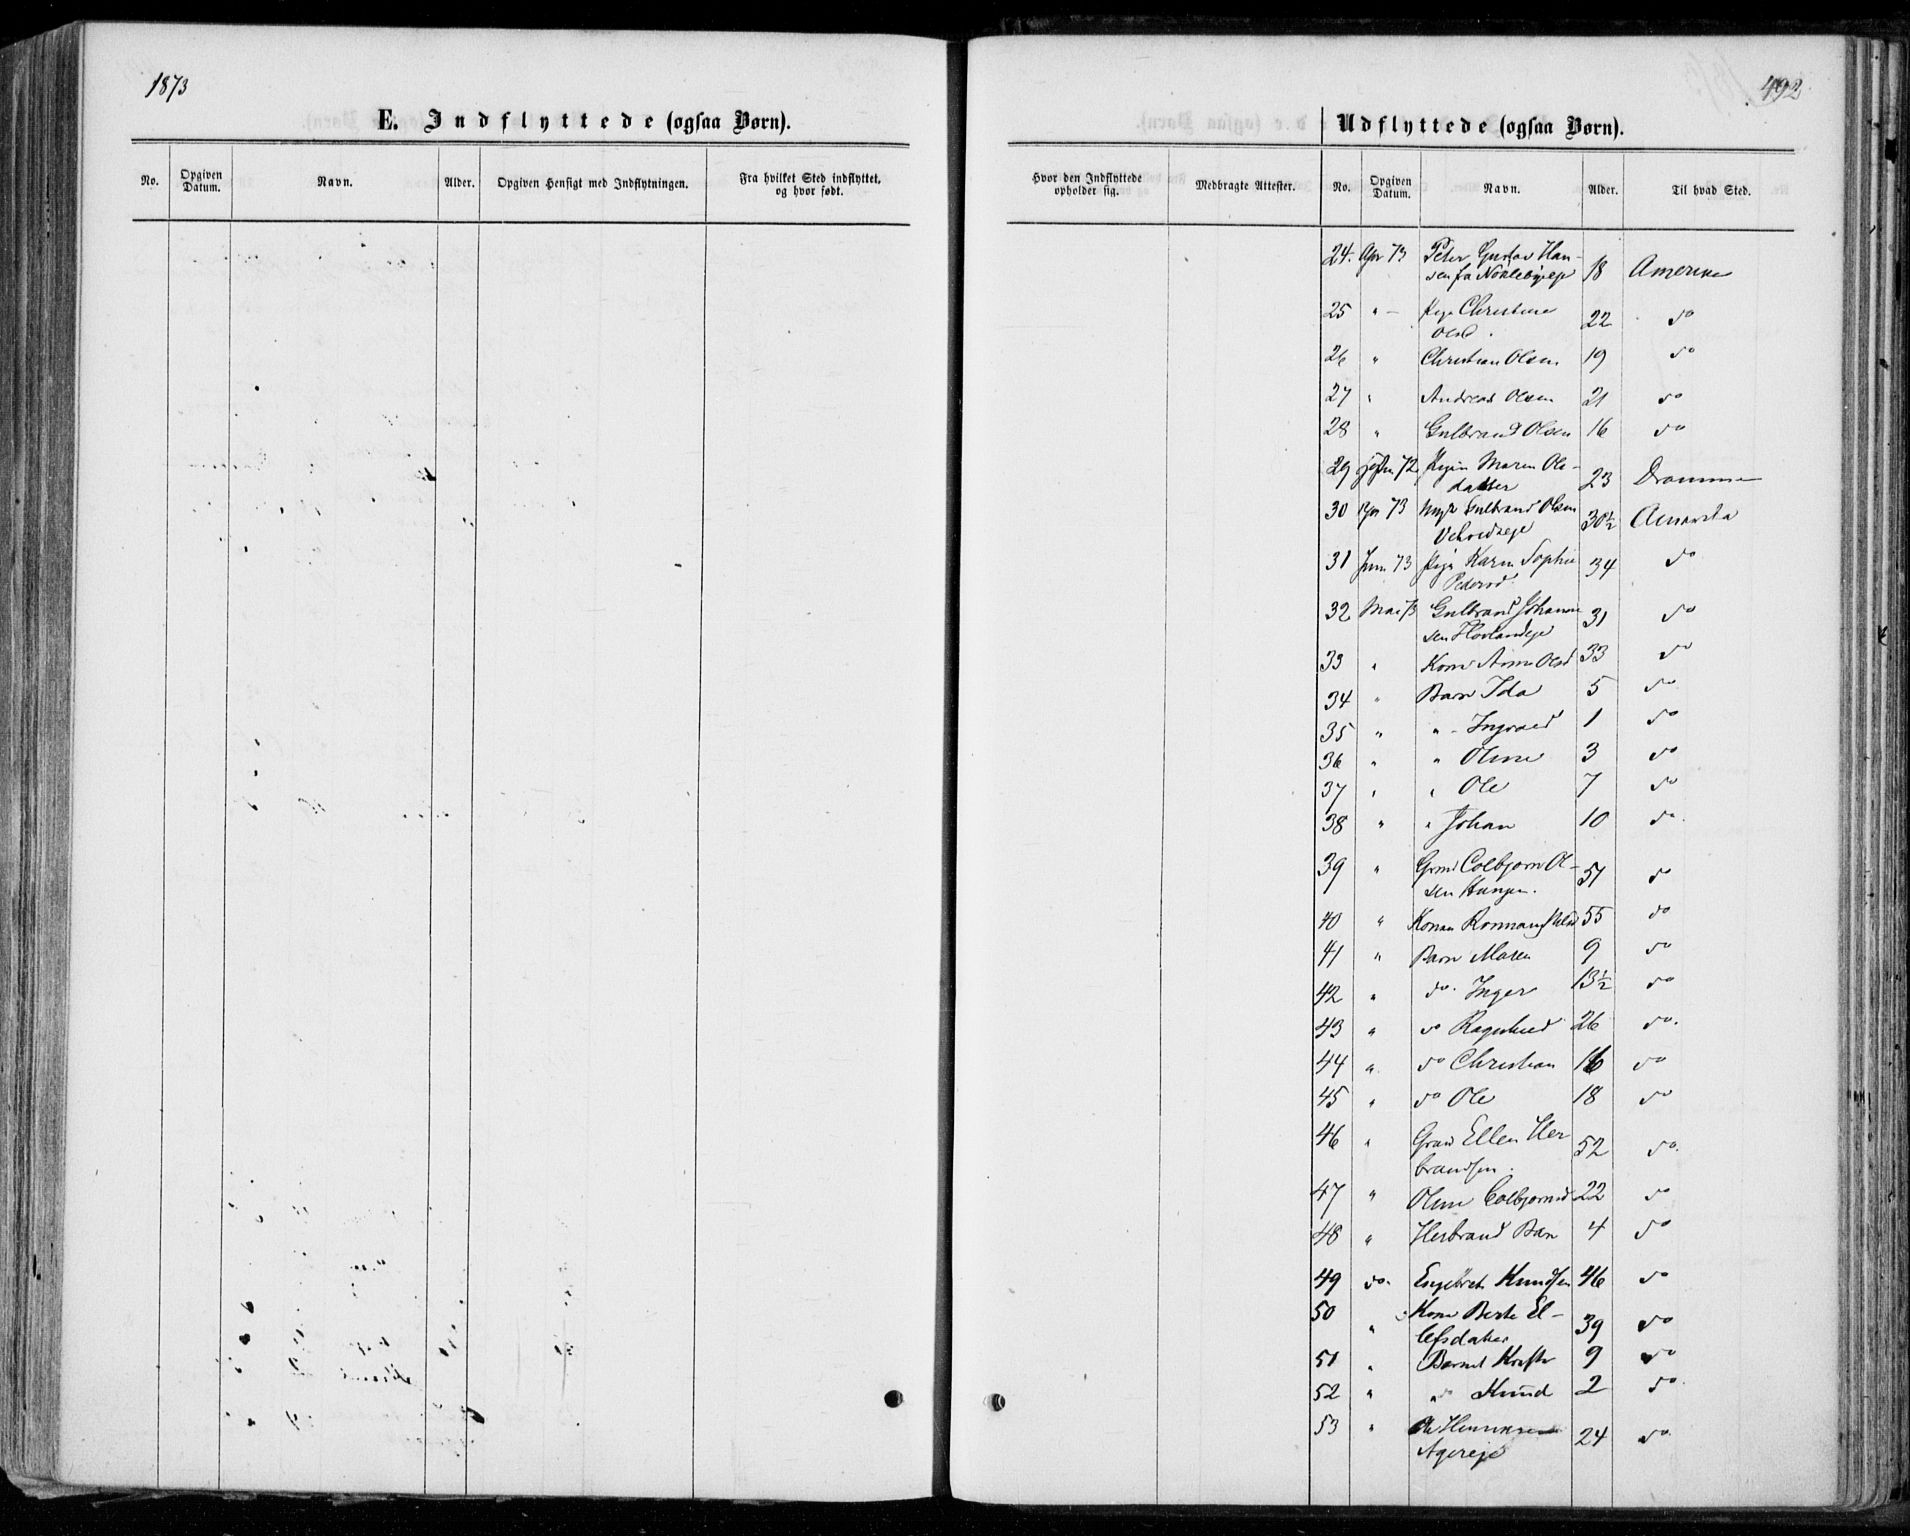 1873
492
E. Indflyttede (ogsaa Børn).
Udflyttede (ogsaa Børn).
No.
Opgiven Datum.
Navn.
Alder.
Opgiven Hensigt med Indflytningen.
Fra hvilket Sted indflyttet, og hvor født.
Hvor den Indflyttede opholder sig.
Medbragte Attester.
No.
Opgiven Datum.
Navn.
Alder.
Til hvad Sted.
24. Apr 73 Peter Gustav Han-
sen fra 18 Amerika
25 " - Pige Christine
Olsd. 22 do
26 " Christian Olsen 19 do
27 " Andreas Olsen 21 do
28 " Gulbrand Olsen 16 do
29 72 Pigen Maren Ols-
datter 23 Drammen
30 Apr 73 Ungk Gulbrand Olsen
30½ Amerika
31 Juni 73 Pige Karen Sophie
Pedersd. 34 do
32 Mai 73 Gulbrand Johanne
sen Hovlandeje 31 do
33 " Kone Anne Olsd 33 do
34 " Barn Ida 5 do
35 " " - Ingvald 1 do
36 " " Oline 3 do
37 " " Ole 7 do
38 " " Johan 10 do.
39 " Grmd Colbjørn Ol-
sen Haugen. 51 do
40 " Konen 55 do
41 " Barn Maren 9 do
42 " do. Inger 13½ do
43 " do Ragnhild 26 do.
44 " do Christian 16 do
45 " do Ole 18 do
46 " Ellen Her
brandsen. 52 do.
47 " Oline Colbjørnsd 22 do
48 " Herbrand Barn 4 do
49 do. Engebret Knudsen 46 do
50 " Kone Berte El-
lefsdatter 39 do
51 " Barnet 9 do
52 " do Knud 2 do.
53 " Ole Henriksen
Agereje 24 do.